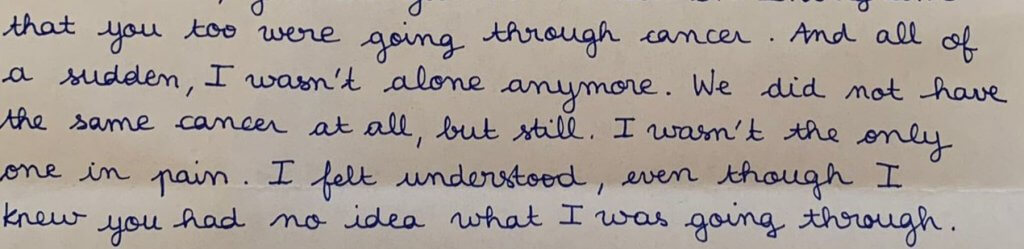 that you too were going through cancer. And all of
a sudden, I wasn't alone anymore. We did not have
the same cancer at all, but still. I wasn't the only
one in pain. I felt understood, even though I
knew you had no idea what I was going through.